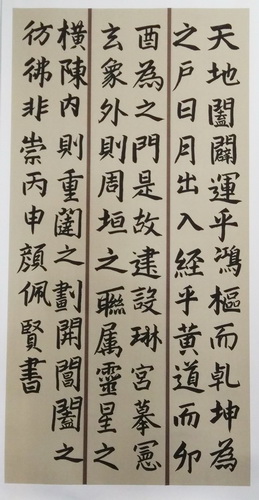 天地闔闢運乎鴻樞而乹坤為
之戸日月出入經乎黄道而卯
酉為之門是故建設琳宮摹憲
玄象外則周垣之聮属靈星之
橫陳内則重闥之劃開閶闔之
彷彿非崇丙申顔佩賢書